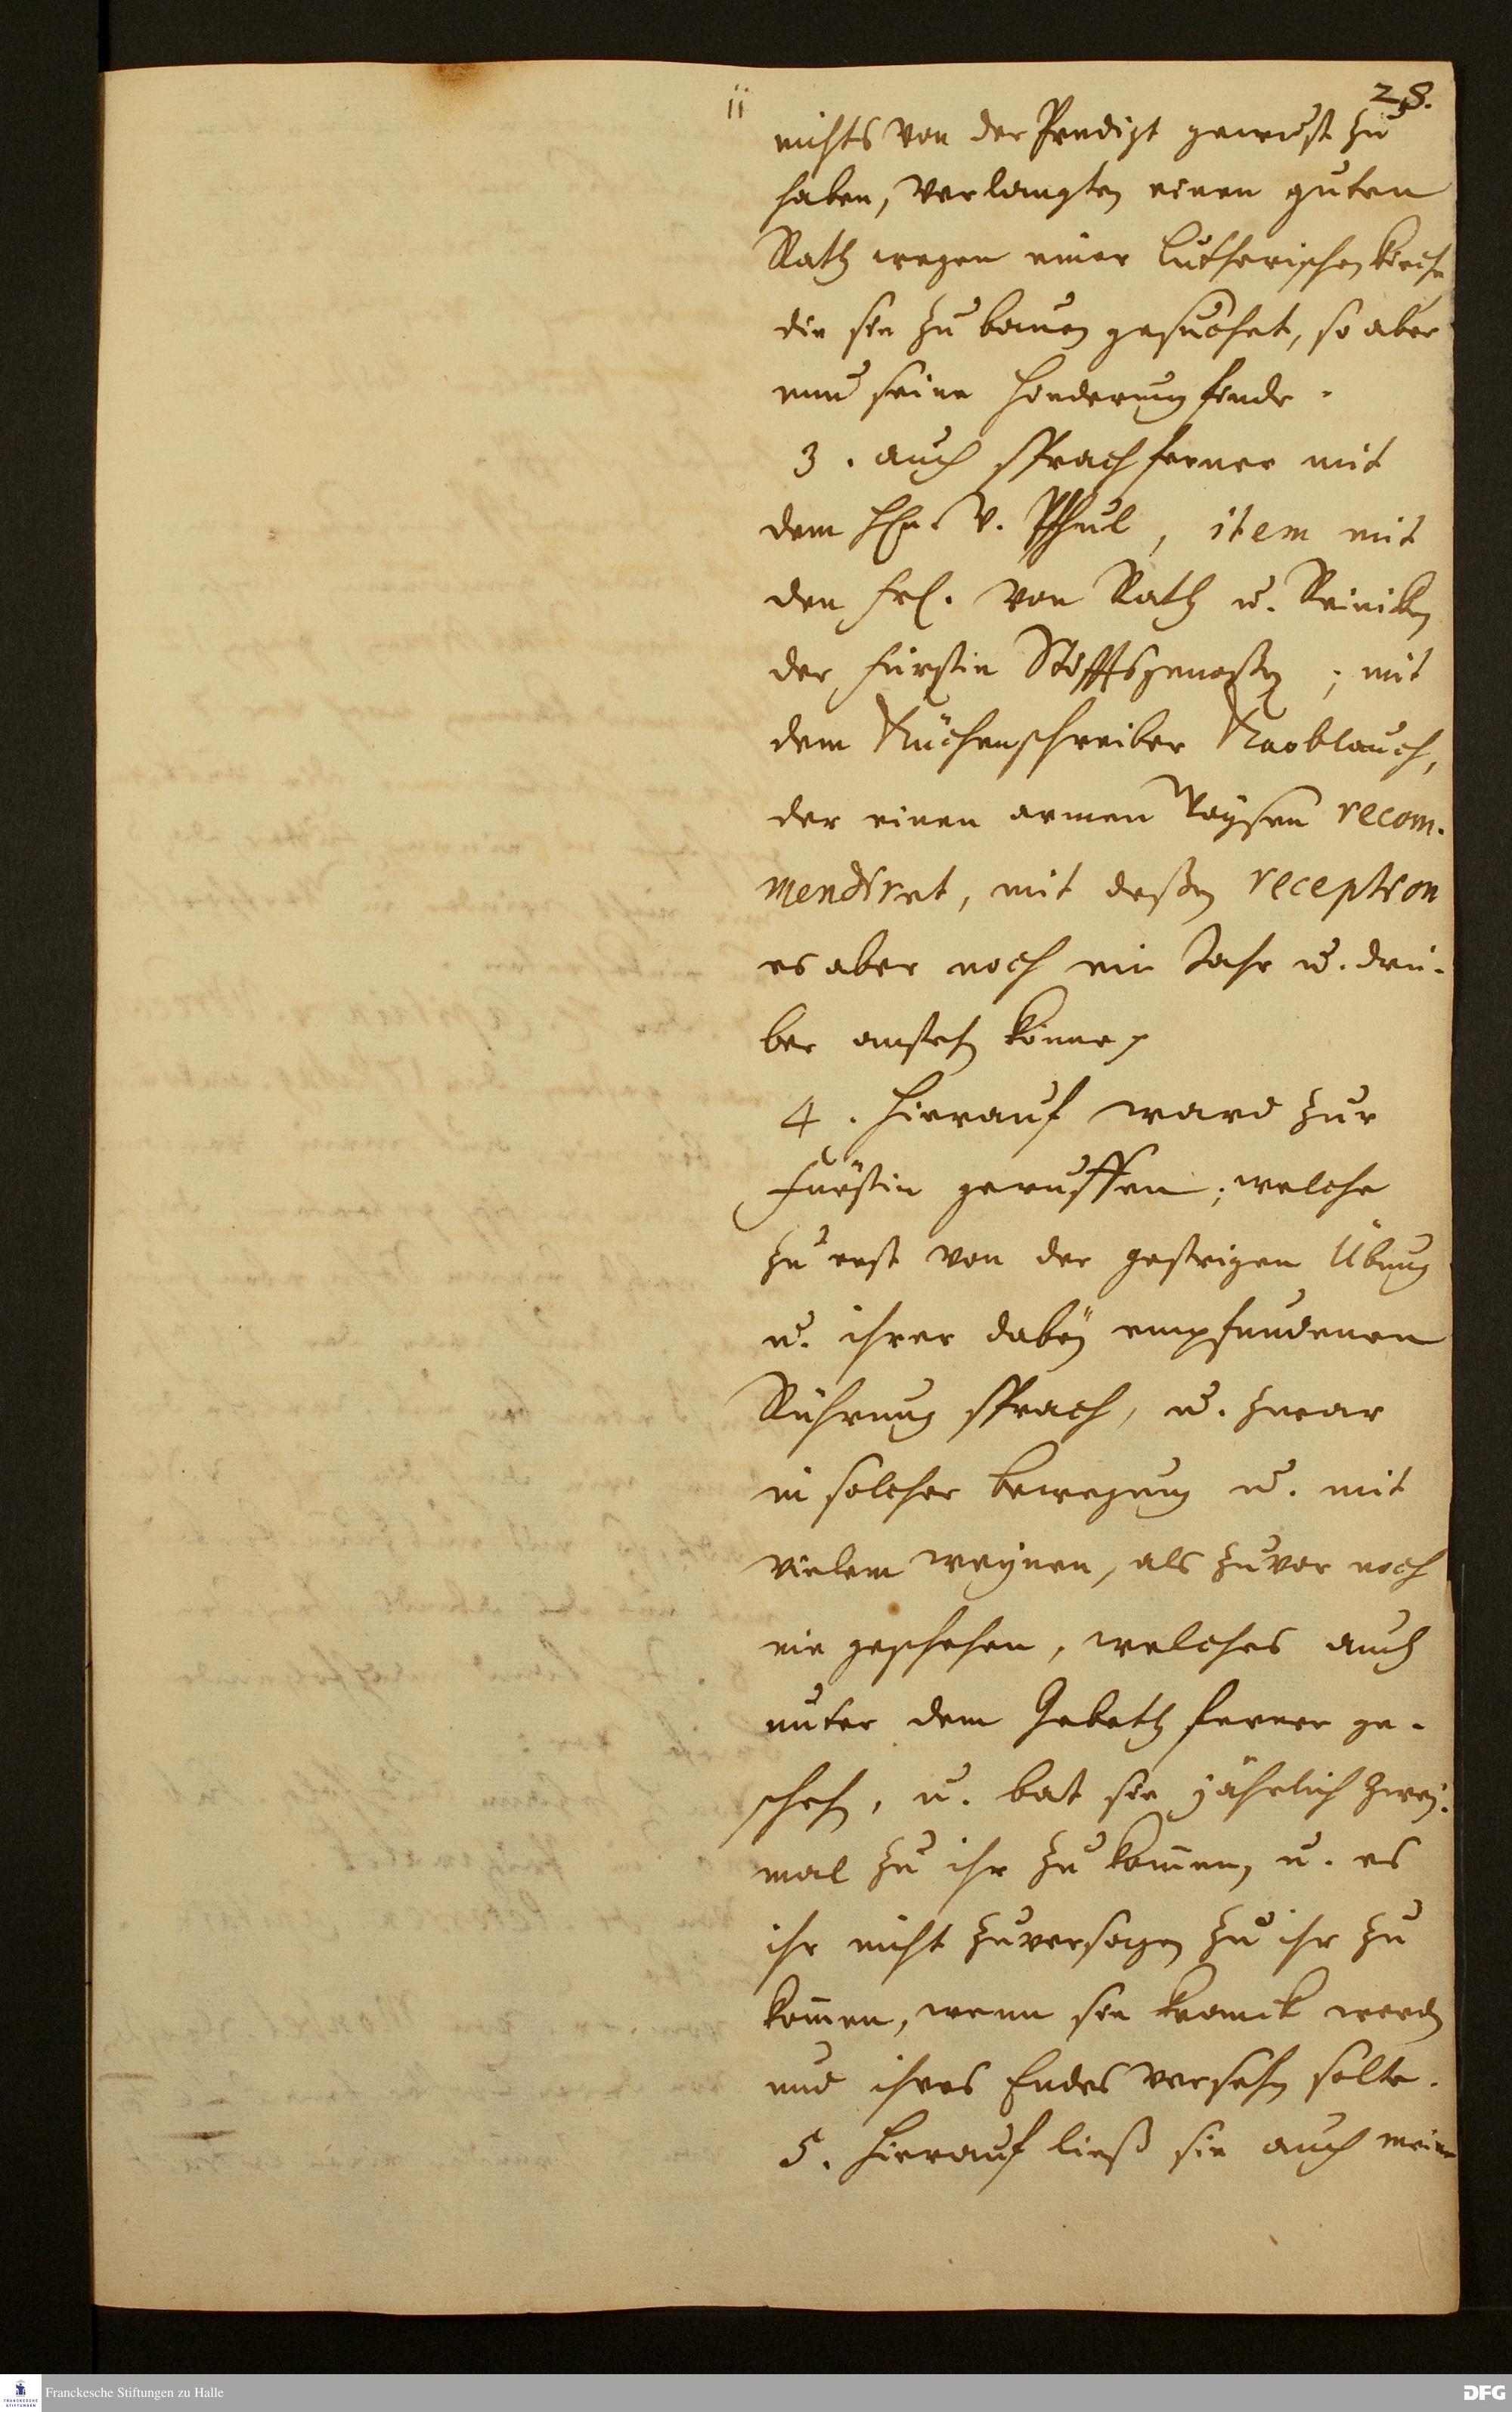 ii
28.
nichts von der Predigt gewust zu
haben, verlangten einen guten
Rath wegen einer Lutherischen Kirche
die sie zu bauen gesuchet, so aber
nun seine Hinderung finde.
3. auch sprach ferner mit
dem HEn. v. Pfuhl, item mit
den Frl. von Rath u. Reinike
der Fürstin Stifftsgenossen; mit
dem Küchenschreiber Knoblauch,
der einen armen Waysen recom-
mendiret, mit deßen reception
es aber noch ein Jahr u. drü-
ber anstehen könne.
4. Hierauf ward zur
Fürstin geruffen; welche
zu erst von der gestrigen Übung
u. ihrer dabey empfundenen
Rührung sprach, u. zwar
in solcher bewegung u. mit
vielem weynen, als zuvor noch
nie geschehen, welches auch
unter dem Gebeth ferner ge-
schehen, u. bat sie jährlich zwey-
mal zu ihr zu kom̄en, u. es
ihr nicht zuversagen zu ihr zu
kom̄en, wenn sie kranck werden
und ihres Endes versehen solte.
5. Hierauf ließ sie auch meine
Franckesche Stiftungen zu Halle
DFG